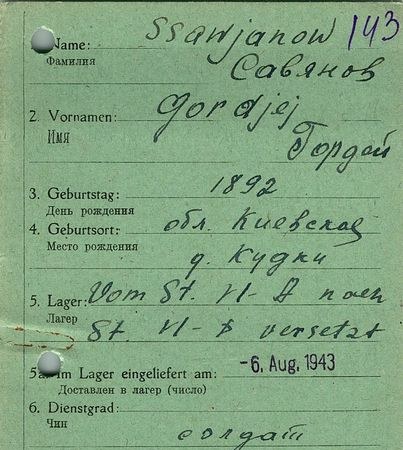 Name: Ssawjanow 143
Фамилия Савянов
2. Vornamen: Gordjej
Имя Гордей
3. Geburtstag: 1892
День рождения
4. Geburtsort: обл. Киевская
Место рождения
д. Кудки
5. Lager: Vom St. II-A nach
Лагер
St. II- versetzt
5a. Im Lager eingeliefert am: -6. Aug. 1943
Доставлен в лагер (число)
6. Dienstgrad:
Чин
солдат